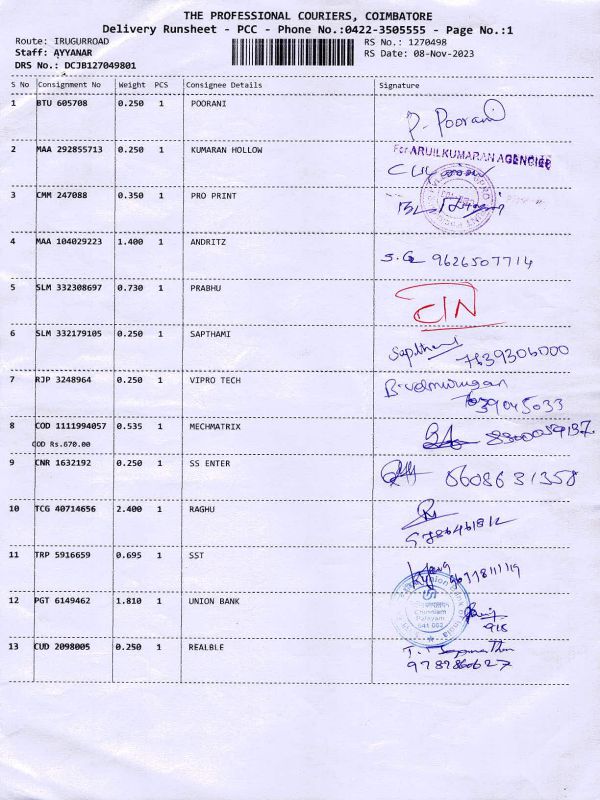 THE PROFESSIONAL COURIERS, COIMBATORE
Delivery Runsheet - PCC - Phone No.:0422-3505555 - Page No.:1
Route: IRUGURROAD RS No.: 1270498
Staff: AYYANAR RS Date: 08-Nov-2023
DRS No.: DCJB127049801
S No Consignment No Weight PCS Consignee Details Signature
1 BTU 605708 0.250 1 POORANI P. Poorani
2 MAA 292855713 0.250 1 KUMARAN HOLLOW For ARUILKUMARAN AGENCIES
3 CMM 247088 0.350 1 PRO PRINT
4 MAA 104029223 1.400 1 ANDRITZ S.G 9626507714
5 SLM 332308697 0.730 1 PRABHU
6 SLM 332179105 0.250 1 SAPTHAMI 7639306000
7 RJP 3248964 0.250 1 VIPRO TECH B. velmurugan
8 COD 1111994057 0.535 1 MECHMATRIX
COD Rs.670.00
9 CNR 1632192 0.250 1 SS ENTER 8608631358
10 TCG 40714656 2.400 1 RAGHU
11 TRP 5916659 0.695 1 SST
12 PGT 6149462 1.810 1 UNION BANK
Union Bank of India
Chinniam
Palayam
641 062
918
13 CUD 2098005 0.250 1 REALBLE
9787860627